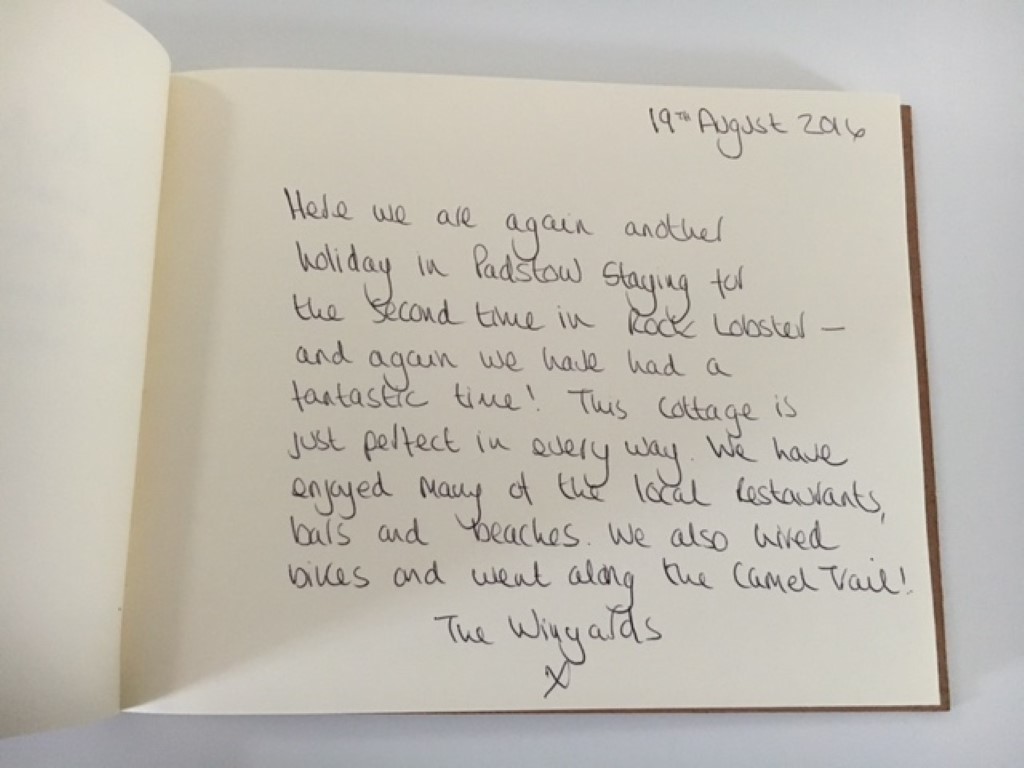 19TH August 2016
Here we are again another
holiday in Padstow staying for
the second time in Rock Lobster –
and again we have had a
fantastic time! This cottage is
just perfect in every way. We have
enjoyed many of the local restaurants,
bars and beaches. We also hired
bikes and went along the Camel Trail!
The Wingards
X